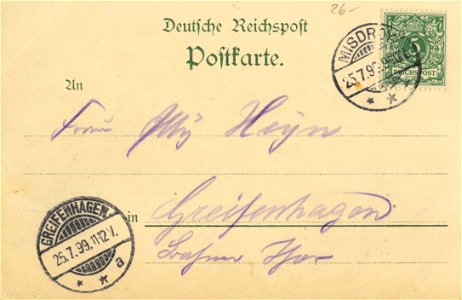 26-
Deutsche Reichspost
Postkarte.
MISDROY
25.7.99
5
REICHSPOST
An
Frau Heyn
in Greifenhagen
GREIFENHAGEN.
26.7.99.11-12V.
* * a